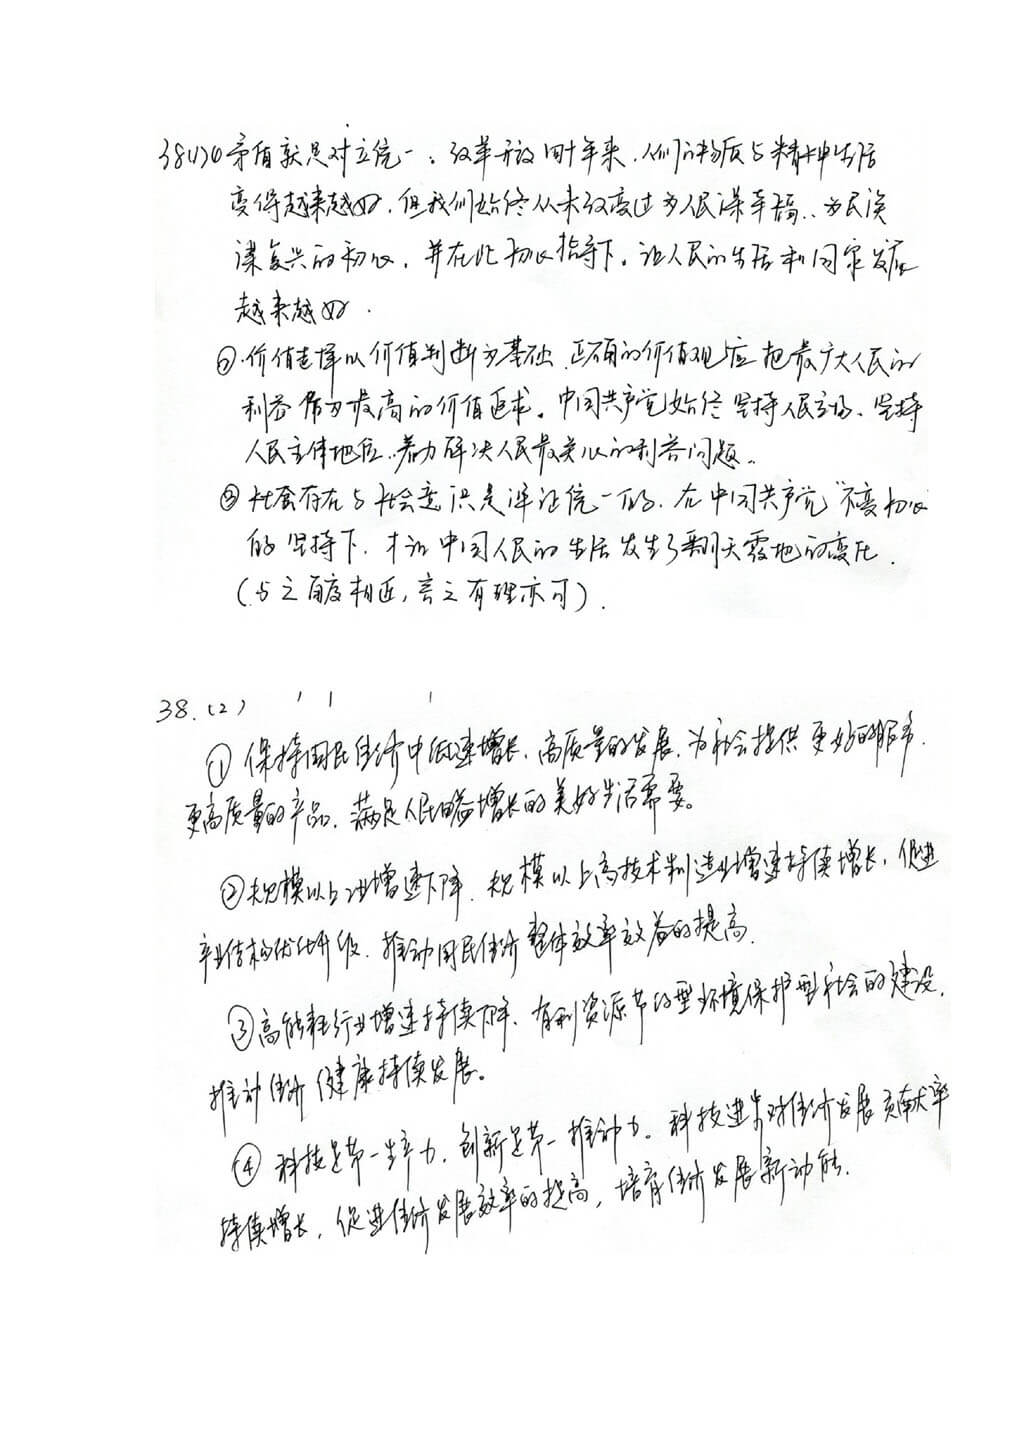 38(1)①矛盾就是对立统一。改革开放四十年来,人们的物质与精神生活
变得越来越好,但我们始终从未改变过为人民谋幸福、为民族
谋复兴的初心,并在此初心指导下,让人民的生活和国家发展
越来越好.
②价值选择以价值判断为基础,正确的价值观应把最广大人民的
利益作为最高的价值追求。中国共产党始终坚持人民立场、坚持
人民主体地位,着力解决人民最关心的利益问题。
③社会存在与社会意识是辩证统一的,在中国共产党“不变初心
的坚持下,才让中国人民的生活发生了翻天覆地的变化.
(与之角度相近,言之有理亦可).
38.(2)
①保持国民经济中低速增长,高质量的发展,为社会提供更好的服务.
更高质量的产品,满足人民日益增长的美好生活需要。
②规模以上工业增速下降,规模以上高技术制造业增速持续增长,促进
产业结构优化升级,推动国民经济整体效率效益的提高.
③高能耗行业增速持续下降,有利资源节约型环境保护型社会的建设,
推动经济健康持续发展。
④科技是第一生产力,创新是第一推动力。科技进步对经济发展贡献率
持续增长,促进经济发展效率的提高,培育经济发展新动能.